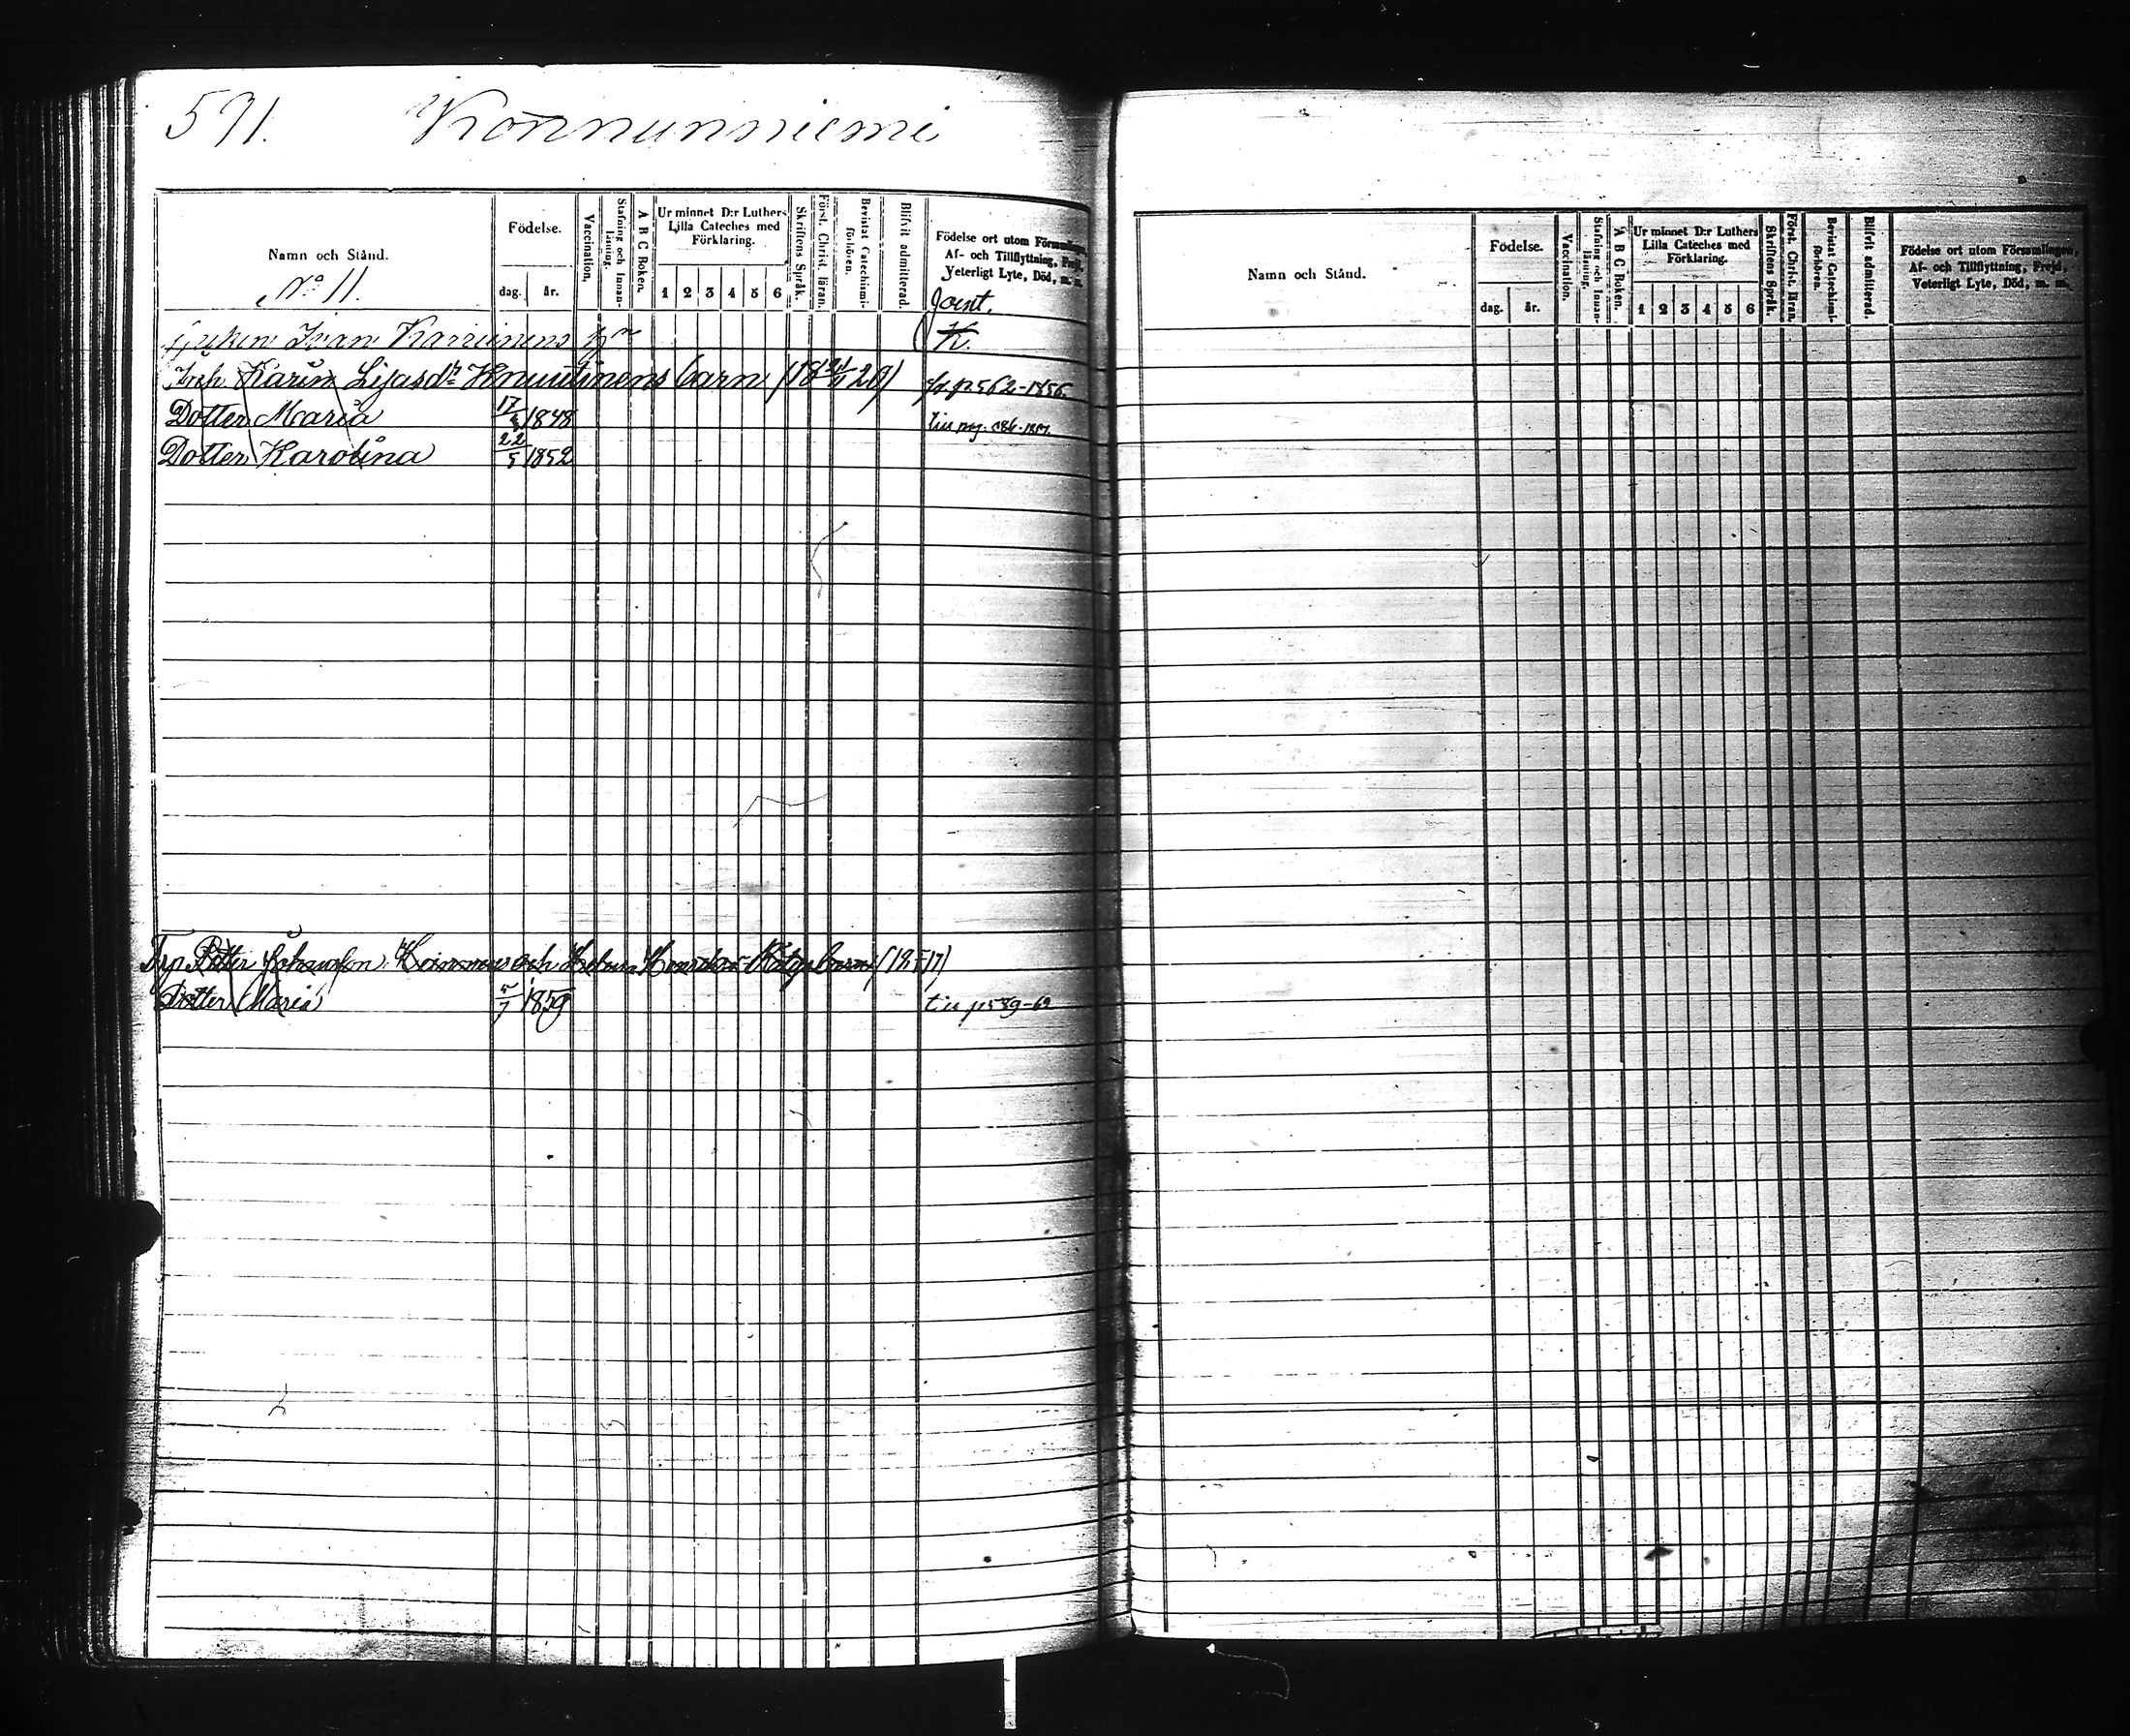 571. Konnunniemi
Namn och Stånd.
No 11.
Födelse.
dag. år.
Vaccination.
Stafning och Innanläsning.
A B C Boken.
Ur minnet D:r Luthers Lilla Cateches med Förklaring.
1 2 3 4 5 6
Skriftens Språk.
Först. Christ. läran.
Bevistat Catechismi-förhören.
Blifvit admitterad.
Födelse ort utom Församlingen,
Af- och Tillflyttning, Frejd,
Veterligt Lyte, Död, m. m.
Ivan
K.
Karin Lijasdr Knuutinens barn p 562-1856.
Dotter Maria 17 1848
Dotter Karolina 22/5 1852
Petter Johansson och Helena barn
Dotter Maria 5/7 1859 p 589-62
Namn och Stånd.
Födelse.
dag. år.
Vaccination.
Stafning och Innanläsning.
A B C Boken.
Ur minnet D:r Luthers Lilla Cateches med Förklaring.
1 2 3 4 5 6
Skriftens Språk.
Först. Christ. läran.
Bevistat Catechismi-förhören.
Blifvit admitterad.
Födelse ort utom Församlingen,
Af- och Tillflyttning, Frejd,
Veterligt Lyte, Död, m. m.